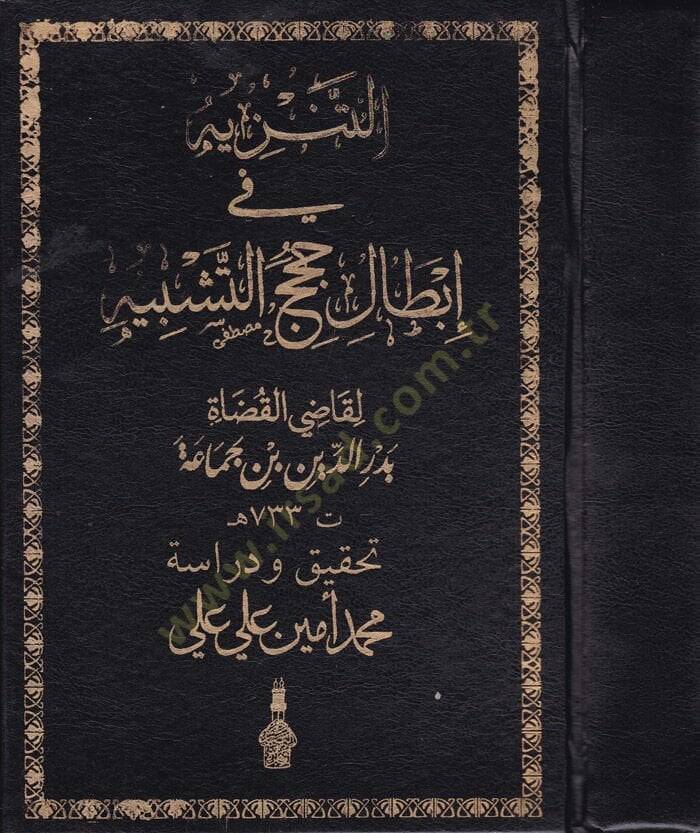 التَّنْزِيهُ
في
إِبْطَالِ حُجَجِ التَّشْبِيهِ
مصطفى
لِقَاضِي القُضَاةِ
بَدْرِ الدِّينِ بْنِ جَمَاعَةَ
ت ٧٣٣هـ
تحقيق ودراسة
محمد أمين علي علي
www.irsad.com.tr